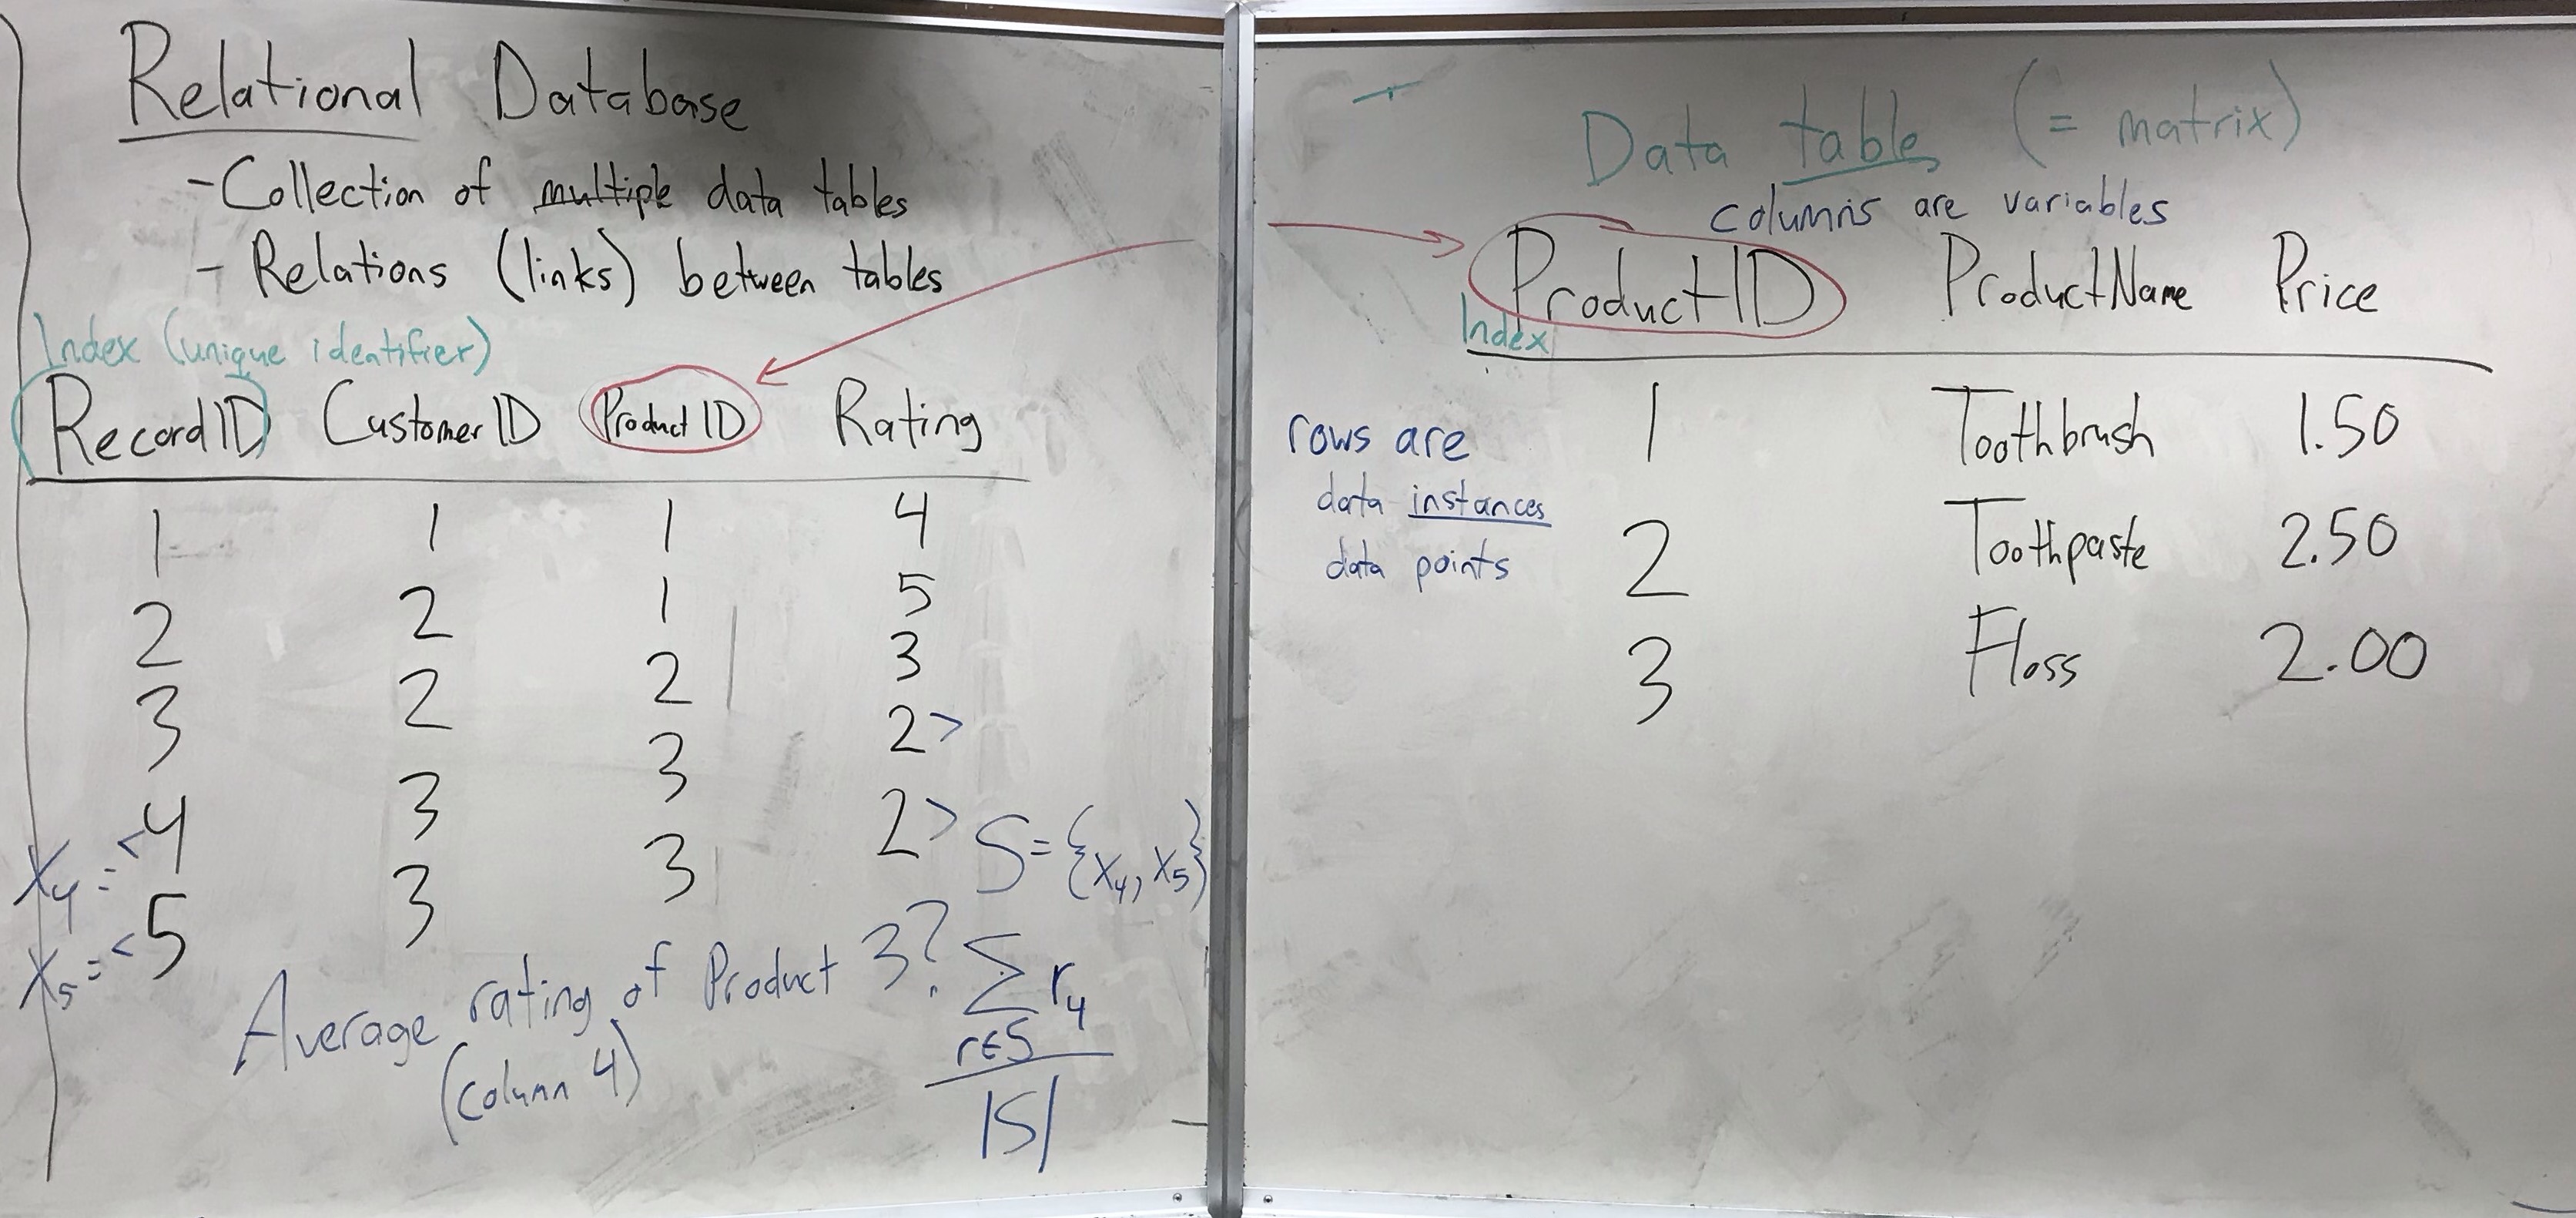 Relational Database
- Collection of multiple data tables
- Relations (links) between tables
Index (unique identifier)
RecordID CustomerID ProductID Rating
1 1 1 4
2 2 1 5
3 2 2 3
x4 = <4 3 3 2>
x5 = <5 3 3 2>
S = {x4, x5}
Average rating of Product 3?
(column 4)
∑ r4
r∈S
|S|
Data table (= matrix)
columns are variables
ProductID ProductName Price
Index
rows are
data instances
data points
1 Toothbrush 1.50
2 Toothpaste 2.50
3 Floss 2.00